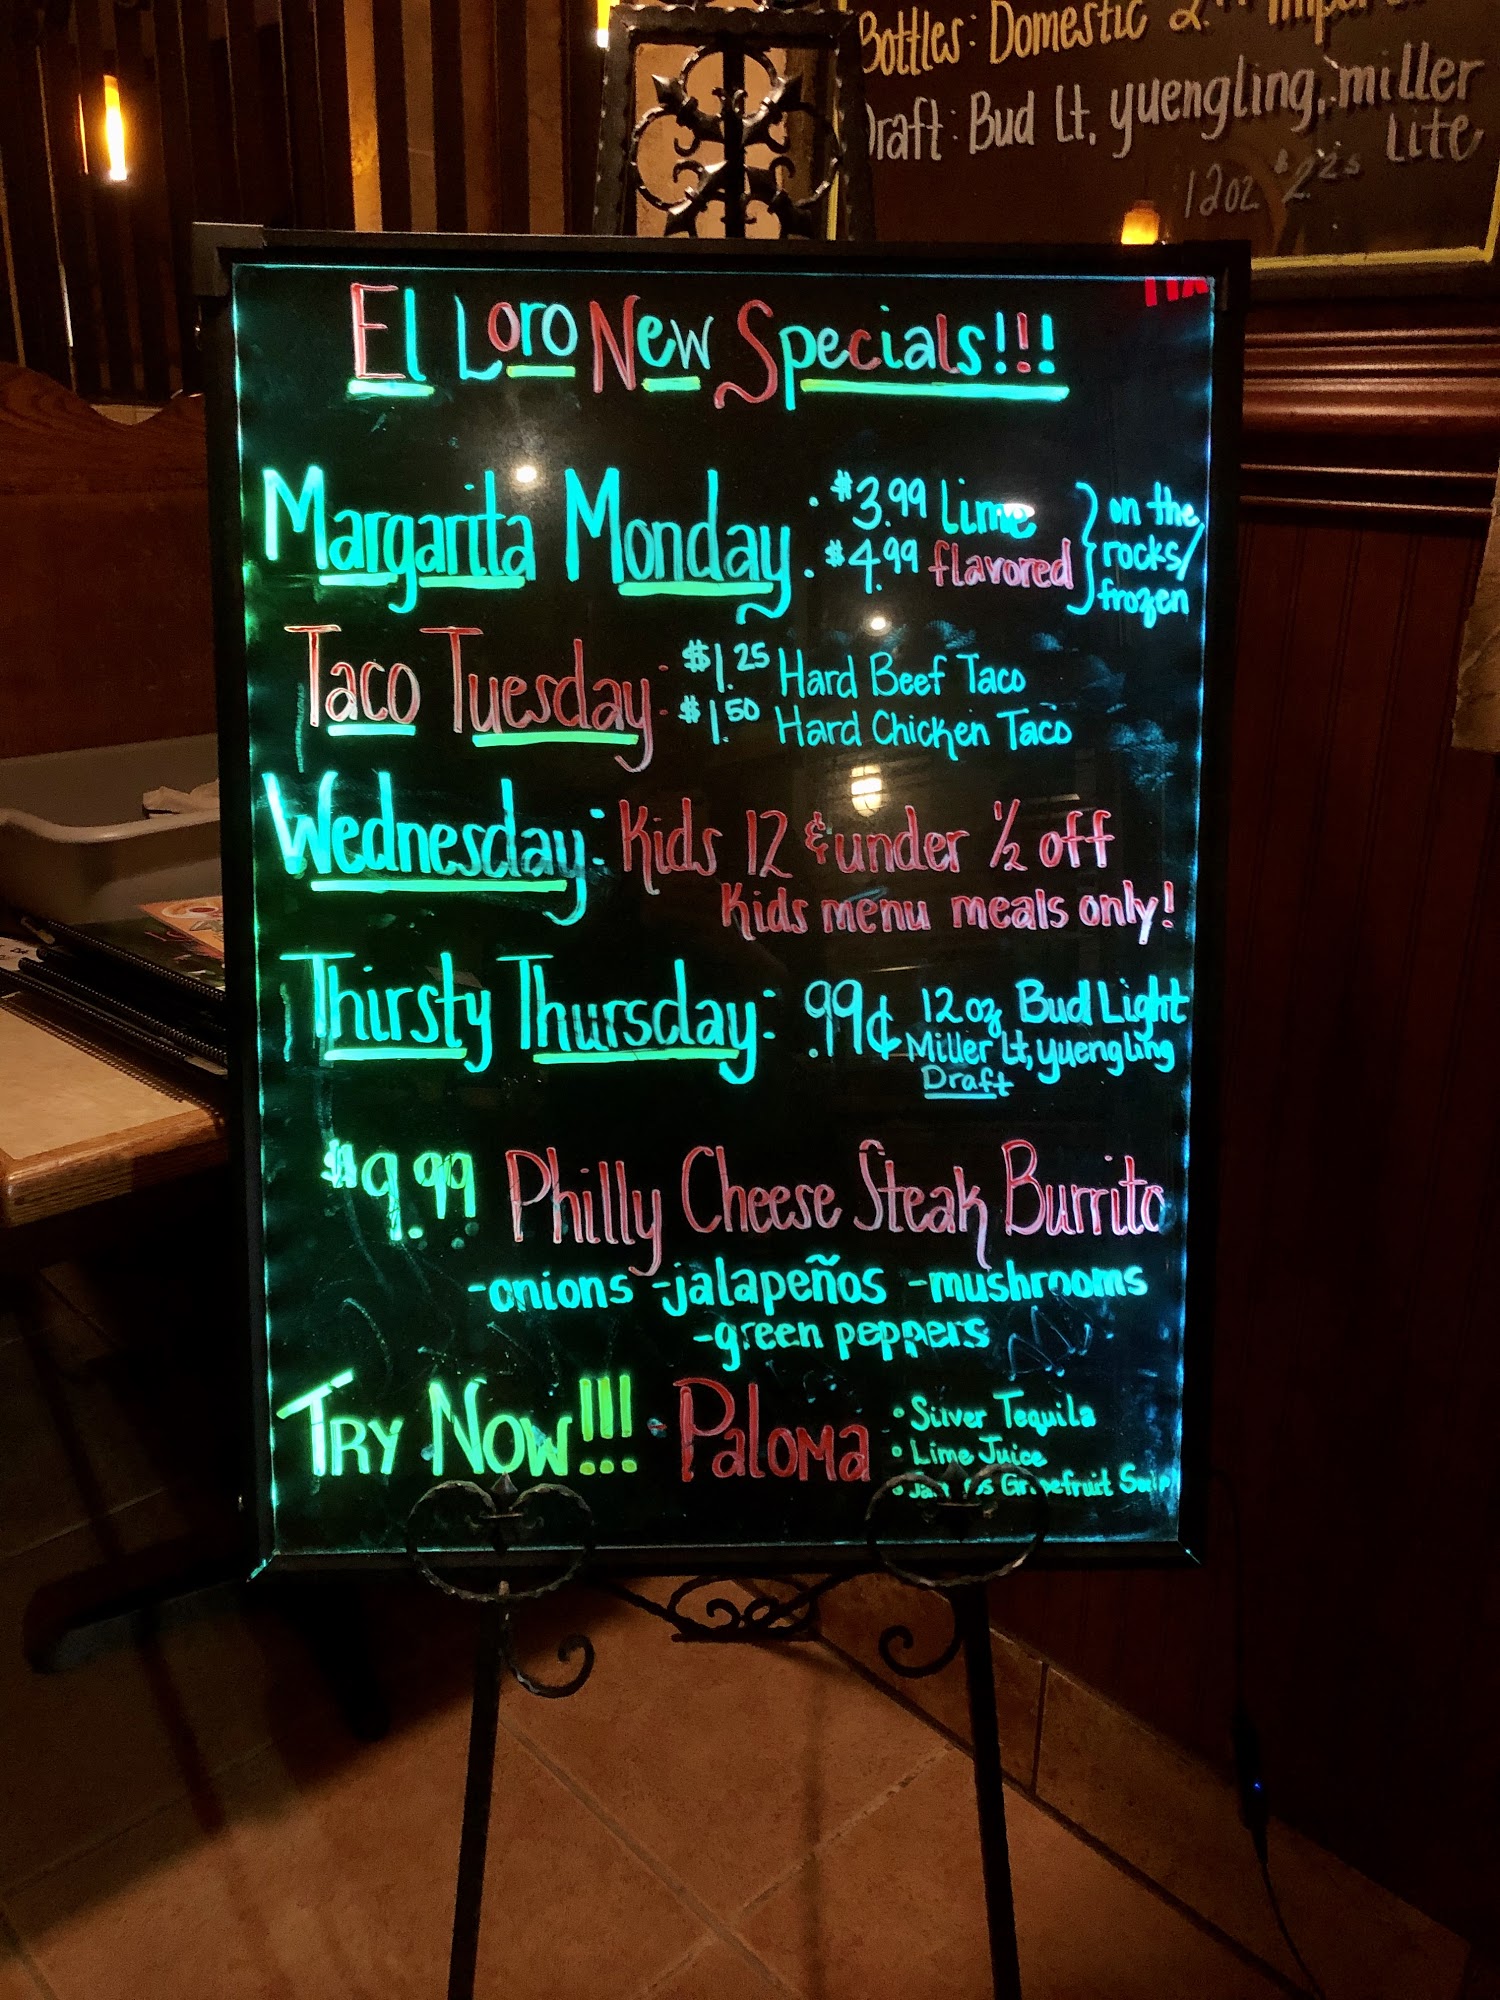 Bottles: Domestic
Draft: Bud Lt, yuengling, miller
Lite
12oz $2.25
El Loro New Specials!!!
Margarita Monday: $3.99 Lime } on the
$4.99 flavored rocks/
frozen
Taco Tuesday: $1.25 Hard Beef Taco
$1.50 Hard Chicken Taco
Wednesday: Kids 12 & under 1/2 off
Kids menu meals only!
Thirsty Thursday: .99¢ 12oz Bud Light
Miller Lt, yuengling
Draft
$9.99 Philly Cheese Steak Burrito
-onions -jalapeños -mushrooms
-green peppers
Try Now!!! • Paloma • Silver Tequila
• Lime Juice